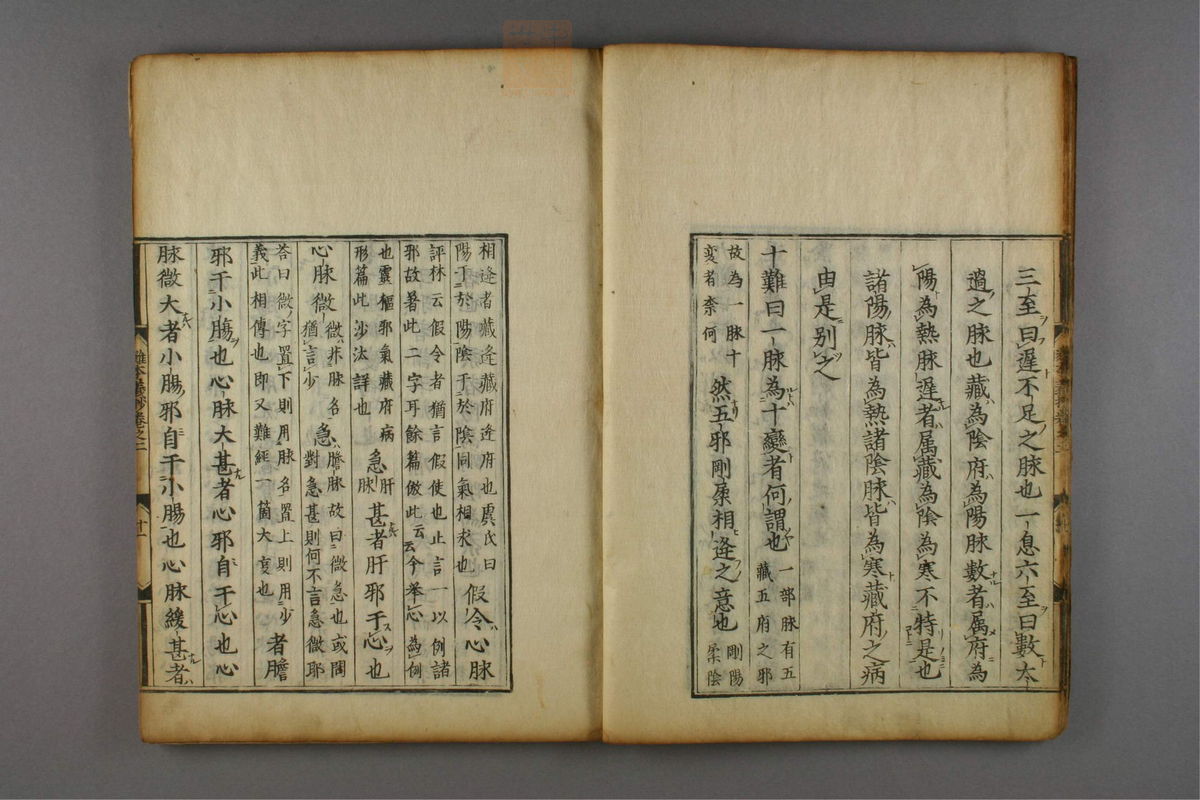 三至曰遲不足之脉也一息六至曰數太
過之脉也藏為陰府為陽脉數者属府為
陽為熱脉遲者属藏為陰為寒不特是也
諸陽脉皆為熱諸陰脉皆為寒藏府之病
由是別之
十難曰一脉為十變者何謂也 一部脉有五
藏五府之邪
故為一脉十
変者奈何 然五邪剛柔相逢之意也 剛陽
柔陰
相逢者藏逢藏府逢府也虞氏曰
陽于於陽陰于於陰同氣相求也 假令心脉
評林云假令者猶言假使也止言一以例諸
邪故著此二字耳餘篇倣此云云今举心為例
也靈樞邪氣藏府病
形篇此沙汰詳也 急肝
脉 甚者肝邪干心也
心脉微 微非脉名
猶言少 急 膽脉故曰微急也或問
對急甚則何不言急微耶
答曰微字置下則用脉名置上則用少
義此相傳也即又難經一箇大変也 者膽
邪干小腸也心脉大甚者心邪自干心也心
脉微大者小腸邪自干小腸也心脉緩甚者
卷之二
十一